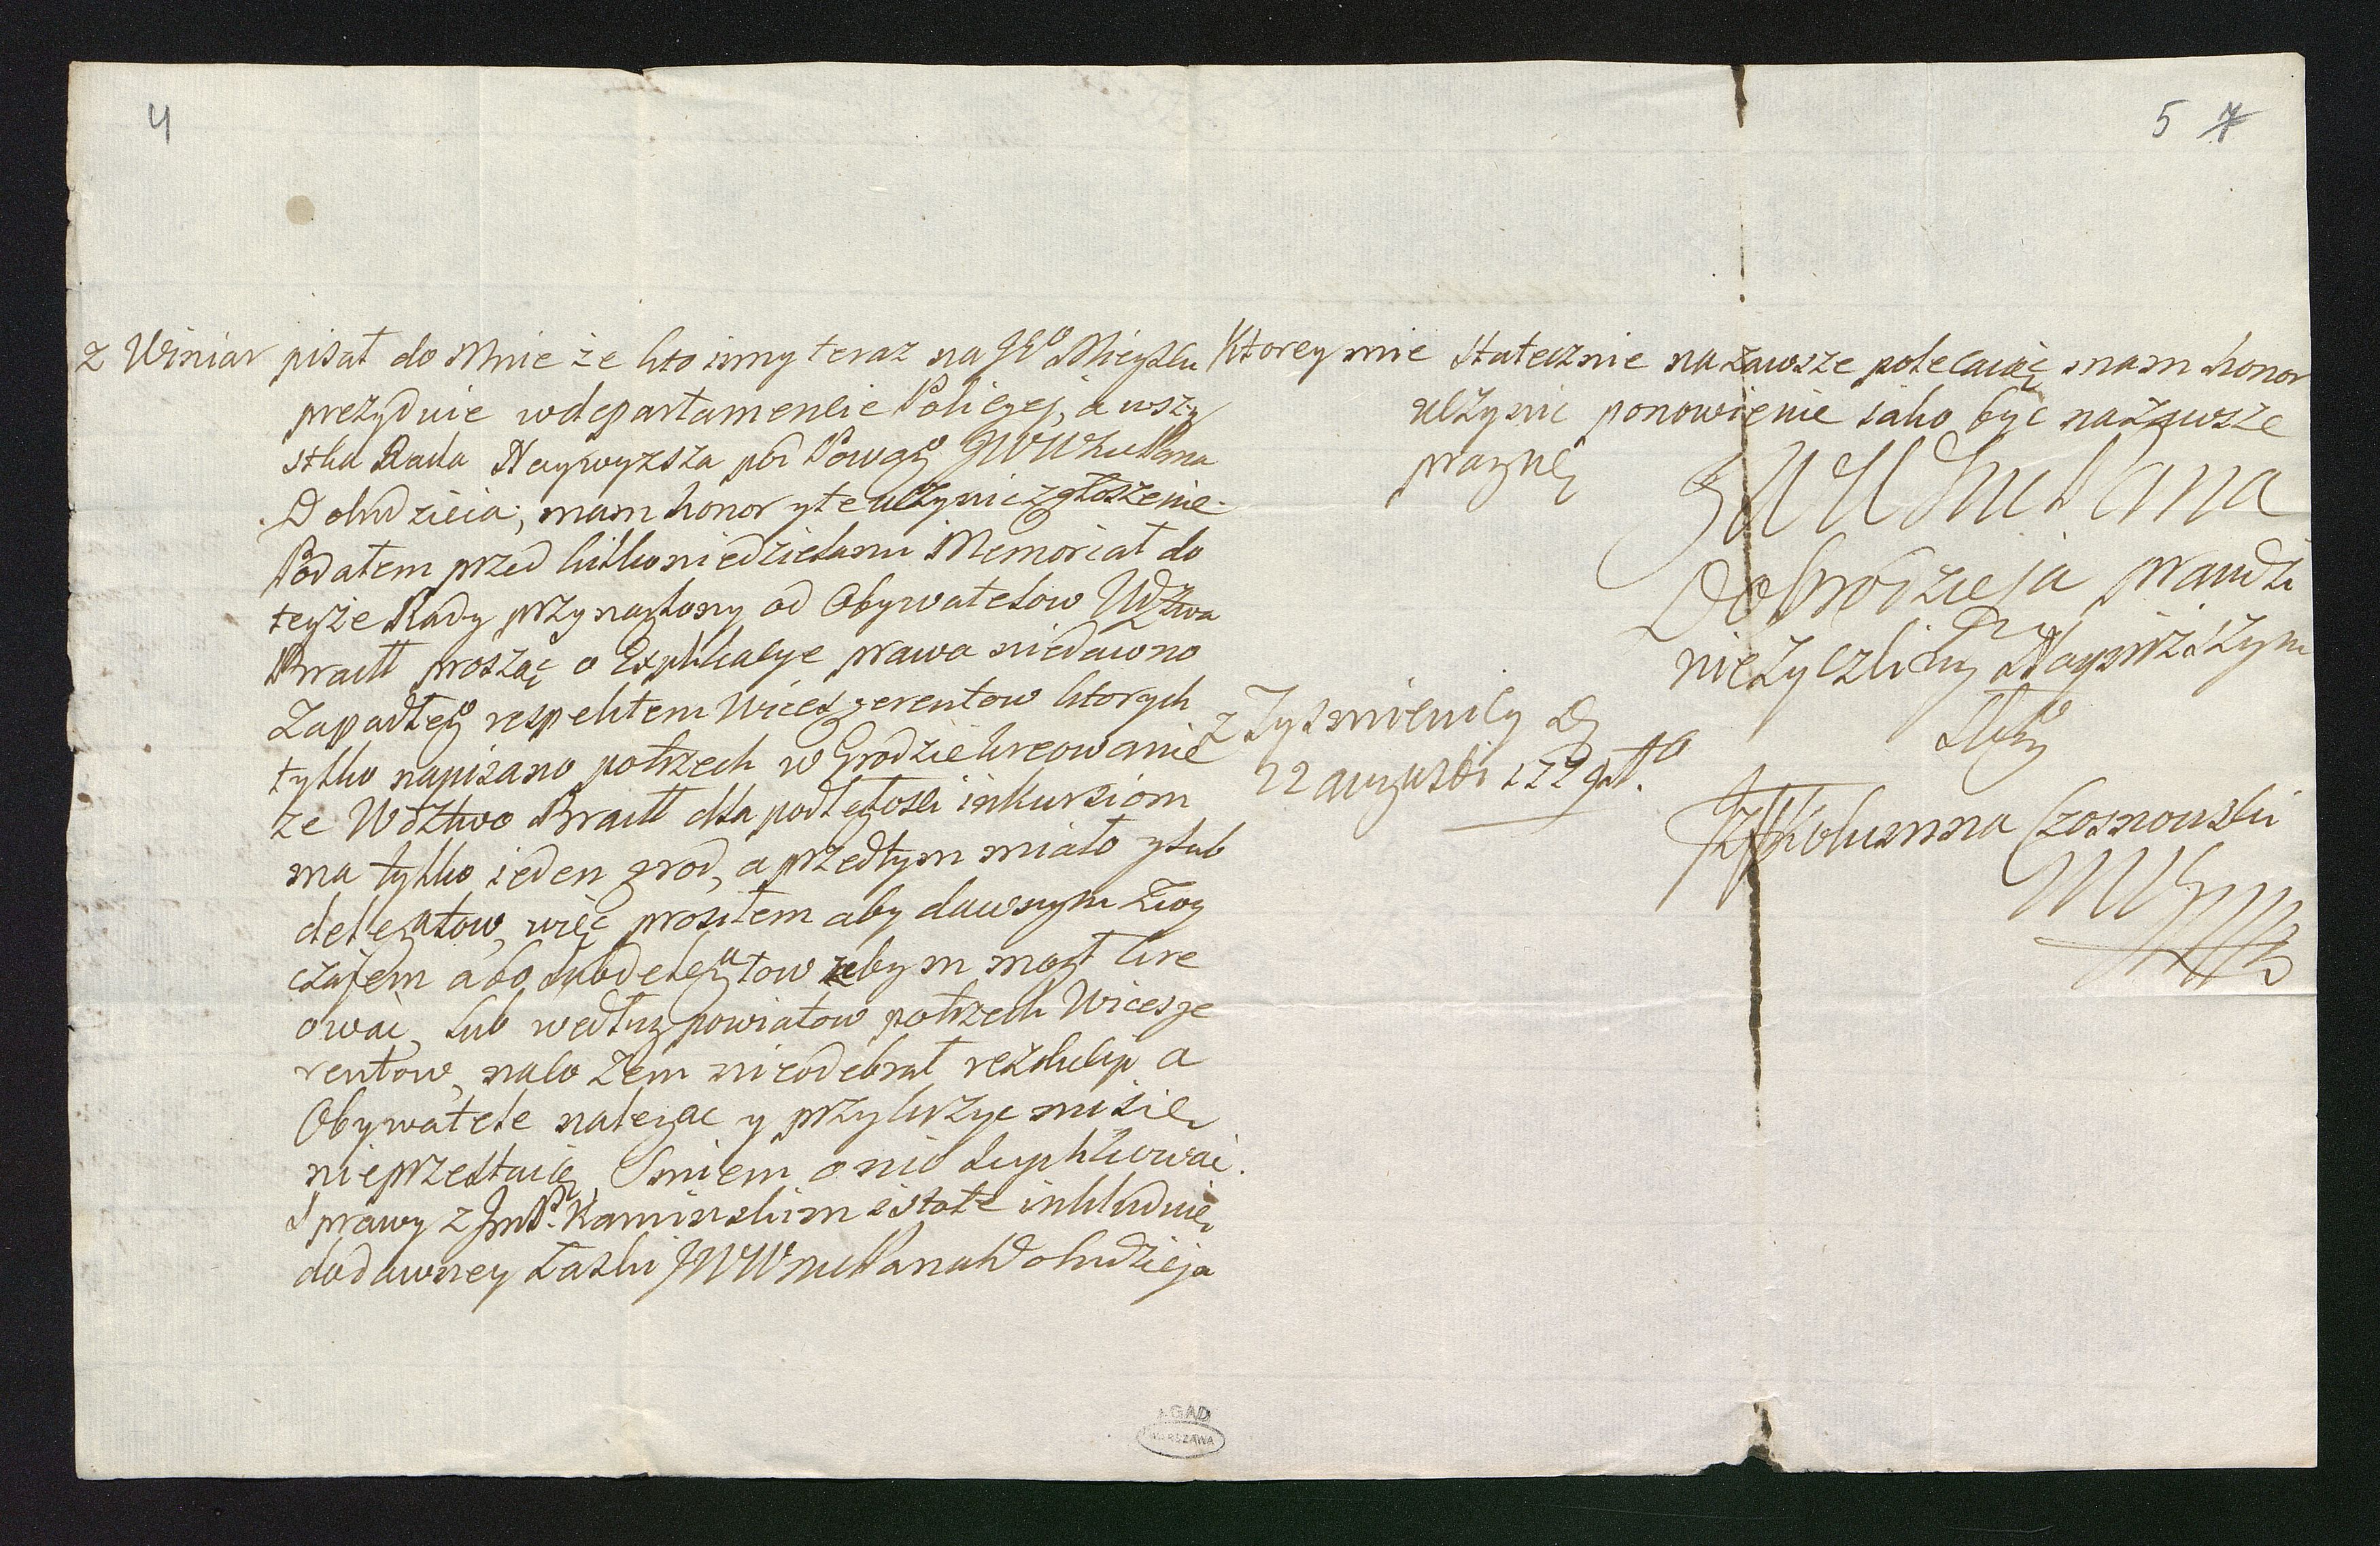 4
z Winiar pisał do Mnie że kto inny teraz na JEo Mieysłu
prezyduie w departamencie Policyej, a wszy
stka Rada Naywyzsza pod Powagą JWWMuPana
Dobrodzieia, mam honor y te uczynic zgłoszenie
Podałem przed kilko niedzielami Memoriał do
teyże Rady przynaglony od Obywatelow Wdztwa
Bracił prosząc o Explikacye prawa niedawno
Zapadłego respektem Vicesgerentow ktorych
tylko napisano potrzech w Grodzie kreowanie
że Wdztwo Bracił dla podległosci inkursiom
ma tylko ieden grod, a przedtym miało y sub
delegatow, więc prosiłem aby dawnym zwy
czajem abo subdelegatow zebym mogł kre
owac, lub według powiatow potrzech Vicesge
rentow, na co zem nieodebrał rezolucyi a
Obywatele nalegac y przykrzyc mi sie
nieprzestaią Smiem o nie suplikowac.
Sprawy z JmP. Kaminskim istote inkluduie
do dawney Łaski JWWMuPana Dobrodzieja
5 7
Ktorey mie statecznie na zawsze polecaiąc mam honor
uczynic ponowienie iako byc na zawsze
pragnę
JWWMuPana
Dobrodzieja prawdzi
nie zyczliwy Naynizszym
Sługą
z Tysmienicy D
22 augusti 177
Kolumna Czosnowski
AGAD
WARSZAWA